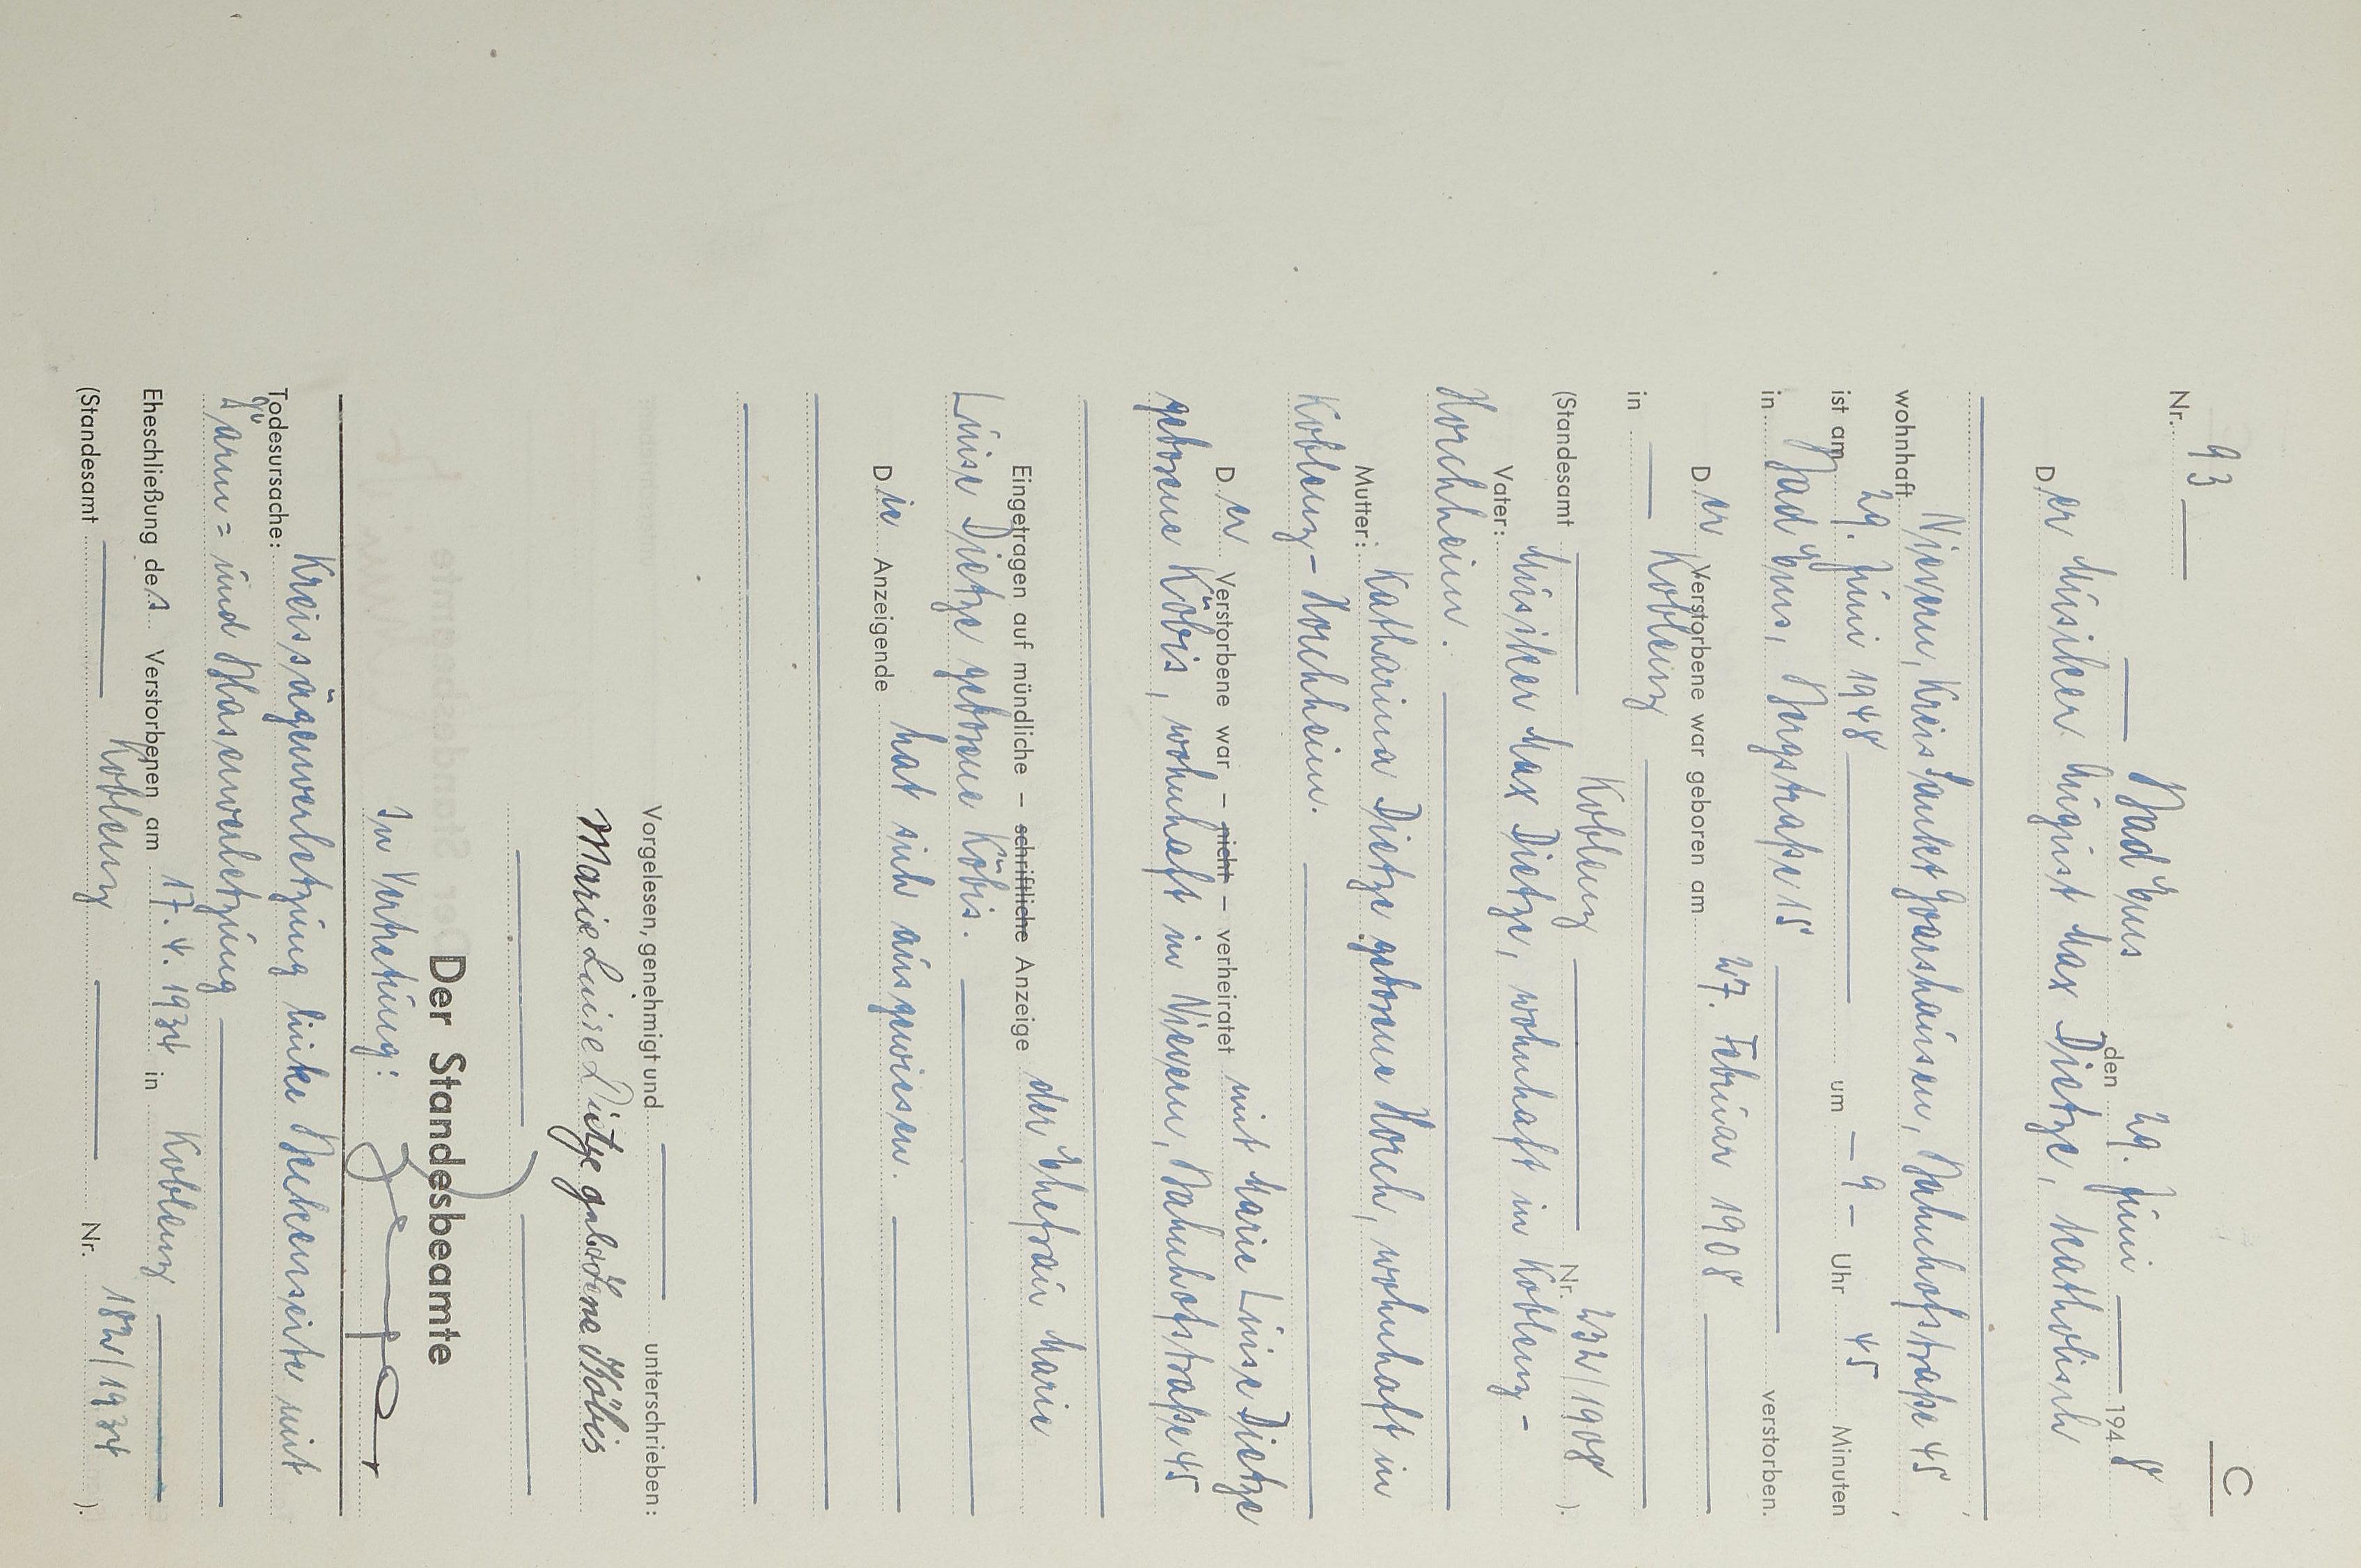 C
Nr. 93
Bad Ems den 29. Juni 1948
Der Musiker August Max Dietze, katholisch
wohnhaft Nievern, Kreis Sankt Goarshausen, Bahnhofstraße 45,
ist am 29. Juni 1948 um - 9 - Uhr 45 Minuten
in Bad Ems, Bergstraße 15 verstorben.
Der Verstorbene war geboren am 27. Februar 1908
in Koblenz
(Standesamt Koblenz Nr. 232/1908).
Vater: Musiker Max Dietze, wohnhaft in Koblenz-
Horchheim.
Mutter: Katharina Dietze geborene Horch, wohnhaft in
Koblenz-Horchheim.
Der Verstorbene war – nicht – verheiratet mit Marie Luise Dietze
geborene Köbis, wohnhaft in Nievern, Bahnhofstraße 45
Eingetragen auf mündliche – schriftliche Anzeige der Ehefrau Marie
Luise Dietze geborene Köbis.
Die Anzeigende hat sich ausgewiesen.
Vorgelesen, genehmigt und unterschrieben:
Marie Luise Dietze geborene Köbis
Der Standesbeamte
In Vertretung:
Todesursache: Kreissägenverletzung linke Beckenseite mit
Darm= und Blasenverletzung
Eheschließung des Verstorbenen am 17. 4. 1934 in Koblenz
(Standesamt Koblenz Nr. 182/1934).